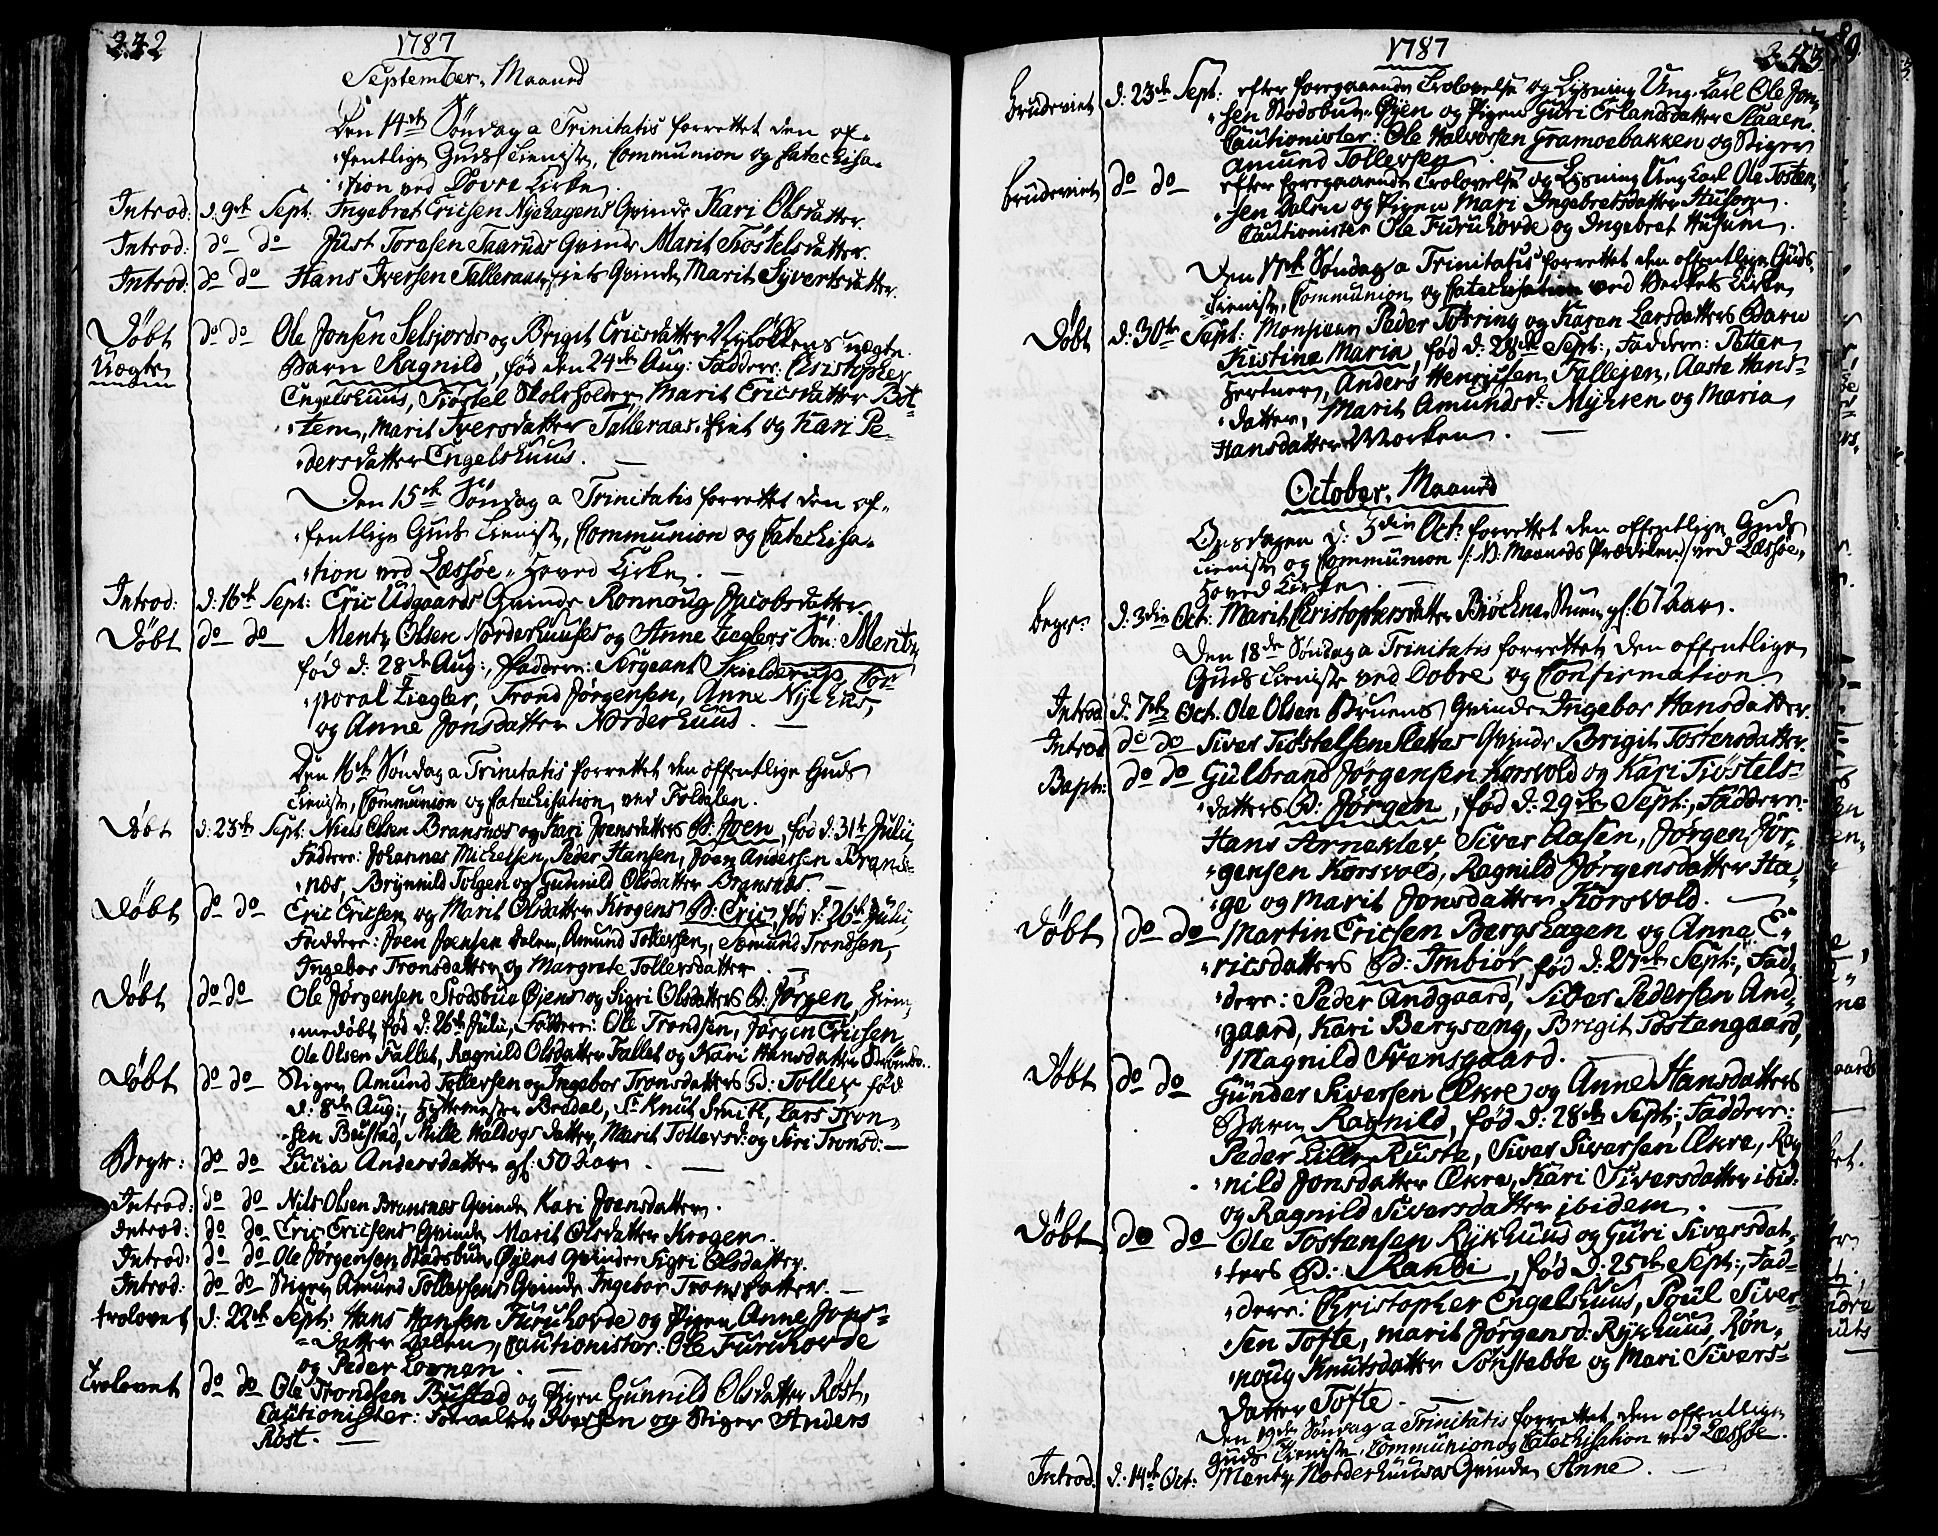 342
1787
September, Maaned
Den 14de Søndag a Trinitatis forrettet den of-
fentlige Guds Tieniste, Communion og Catechisa-
tion ved Dovre Kirke.
Introd: d. 9de Sept. Ingebret Ericsen Nyehagens Qvinde Kari Olsdatter.
Introd: do do Just Toresen Taaruds Qvinde Marit Tiøstelsdatter.
Introd: do do Hans Iversen Talleraas, Qvinde Marit Syvertsdatter.
Døbt do do Ole Jonsen Selsjords og Brigit Ericsdatter
Uægte Barn Ragnild, fød den 24de Aug: Faddere: Christopher
Engelshuus, Tiøstel Skoleholder, Marit Ericsdatter Bot-
tem, Marit Iversdatter Talleraas og Kari Pe-
dersdatter Engelshuus.
Den 15de Søndag a Trinitatis forrettet den of-
fentlige Guds Tieniste, Communion og Catechisa-
tion ved Læssøe Hoved Kirke.
Introd: d: 16de Sept: Eric Udgaards Qvinde Ronnoug Jacobsdatter.
Døbt do do Mentz Olsen Norderhuuses og Anne Zieglers Søn: Mentz,
fød d: 28de Aug:, Faddere: Sergeant Skielderup, Cor-
poral Ziegler, Trond Jørgensen, Anne Nyehus,
og Anne Jonsdatter Norderhuus.
Den 16de Søndag a Trinitatis forrettet den offentlige Guds
Tieniste, Communion og Catechisation ved Foldalen.
Døbt d: 23de Sept: Niels Olsen Bransnæs og Kari Joensdatters B: Joen, fød d: 31te Julii,
Faddere: Johannes Michelsen, Peder Hansen, Joen Andersen Brans-
næs, Brynnild Tolgen og Gunnild Olsdatter Bransnæs.
Døbt do do Eric Ericsen og Marit Olsdatter Krogens B: Eric, fød d: 26de Julii,
Faddere: Joen Joensen Dalen, Amund Tollersen, Amund Trondsen,
Ingebor Tronsdatter og Margrete Tollersdatter.
Døbt do do Ole Jørgensen Stodsbue Øjens og Sigri Olsdatters B: Jørgen, hiem-
medøbt, fød d: 26de Julii, Faddere: Ole Trondsen, Jørgen Ericsen,
Ole Olsen Fallet, Ragnild Olsdatter Fallet og Kari Hansdatter
Døbt do do Stiger Amund Tollersen og Ingebor Tronsdatters B: Toller, fød
d: 8de Aug:, Hyttemester Bredal, Sr Knut Smitt, Lars Tron-
sen Bustad, Mille Haldogsdatter, Marit Tollersd: og Siri Tronsd:
Begr: do do Lucia Andersdatter gl: 50 Aar.
Introd: do do Nils Olsen Bransnæs Qvinde Kari Joensdatter.
Introd: do do Eric Ericsens Qvinde Marit Olsdatter Krogen.
Introd: do do Ole Jørgensen Stadsbue Øjens Qvinde Sigri Olsdatter.
Introd: do do Stiger Amund Tollersens Qvinde Ingebor Tronsdatter.
Trolovet d: 22de Sept: Hans Hansen Furuhovde og Pigen Anne Jons-
datter Dalen, Cautionister: Ole Furuhovde
og Peder Lovnen.
Trolovet do do Ole Trondsen Bustad og Pigen Gunnild Olsdatter Røst,
Cautionister: Iversen og Stiger Anders
Røst.
1787
Brudeviet d: 23de Sept: efter foregaaende Trolovelse og Lysning Ung Karl Ole Jon-
sen Stodsbue Øjen og Pigen Guri Erlandsdatter Slaaen.
Cautionister: Ole Halvorsen Gramoebakken og Stiger
Amund Tollersen
Brudeviet do do efter foregaaende Trolovelse og Lysning Ung Karl Ole Tosten-
sen Dalen og Pigen Mari Ingebretsdatter Husom.
Cautionister Ole Furuhovde og Ingebret Husum.
Den 17de Søndag a Trinitatis forrettet den offentlige Guds
Tieniste, Communion og Catechisation ved Verkets Kirke
Døbt d: 30te Sept: Monsieur Peder Tofring og Karen Larsdatters Barn
Kistine Maria, fød d: 28de Sept:, Faddere: Petter
Hertner, Anders Henrissen, Fallejen, Aaste Hans-
datter, Marit Amundsd: Myhren og Maria
Hansdatter Morken.
October, Maaned
Onsdagen d: 3die Oct: forrettet den offentlige Guds
Tieniste og Communion /: Maaneds Prædiken :/ ved Læssøe
Hoved Kirke.
Begr: d: 3die Oct: Marit Christophersdatter Biøckne Stuen gl: 67 aar.
Den 18de Søndag a Trinitatis forrettet den offentlige
Guds Tieniste ved Dovre og Confirmation
Introd d: 7de Oct: Ole Olsen Bruens Qvinde Ingebor Hansdatter.
Introd do do Siver Tiøstelsen Slettes Qvinde Brigit Tostensdatter.
Bapt: do do Gulbrand Jørgensen Korsvold og Kari Tiøstels-
datters B: Jørgen, fød d: 29de Sept:, Faddere:
Hans Arneklev, Siver Aasen, Jørgen Jør-
gensen Korsvold, Ragnild Jørgensdatter Ha-
ge og Marit Jonsdatter Korsvold.
Døbt do do Martin Ericsen Bergshagen og Anne E-
ricsdatters B: Imbiør, fød d: 27de Sept:, Fad-
dere: Peder Andgaard, Siver Pedersen And-
gaard, Kari Bergseng, Brigit Tostengaard,
Magnild Svensgaard.
Døbt do do Gunder Siversen Ækre og Anne Hansdatters
Barn Ragnild, fød d: 28de Sept:, Faddere:
Peder Lille Ruste, Siver Siversen Ækre, Rag-
nild Jonsdatter Ækre, Kari Siversdatter ibid:
og Ragnild Siversdatter ibidem.
Døbt do do Ole Tostensen Rykhuus og Guri Siversdat-
ters B: Randi, fød d: 25de Sept:, Fad-
dere: Christopher Engelshuus, Poul Siver-
sen Tofte, Marit Jørgensd: Rykhuus, Røn-
noug Knutsdatter Sønstebøe og Mari Sivers-
datter Tofte.
Den 19de Søndag a Trinitatis forrettet den offentlige
Guds Tieniste, Communion og Catechisation ved Læssøe.
Introd: d: 14de Oct: Mentz Norderhuuses Qvinde Anne.